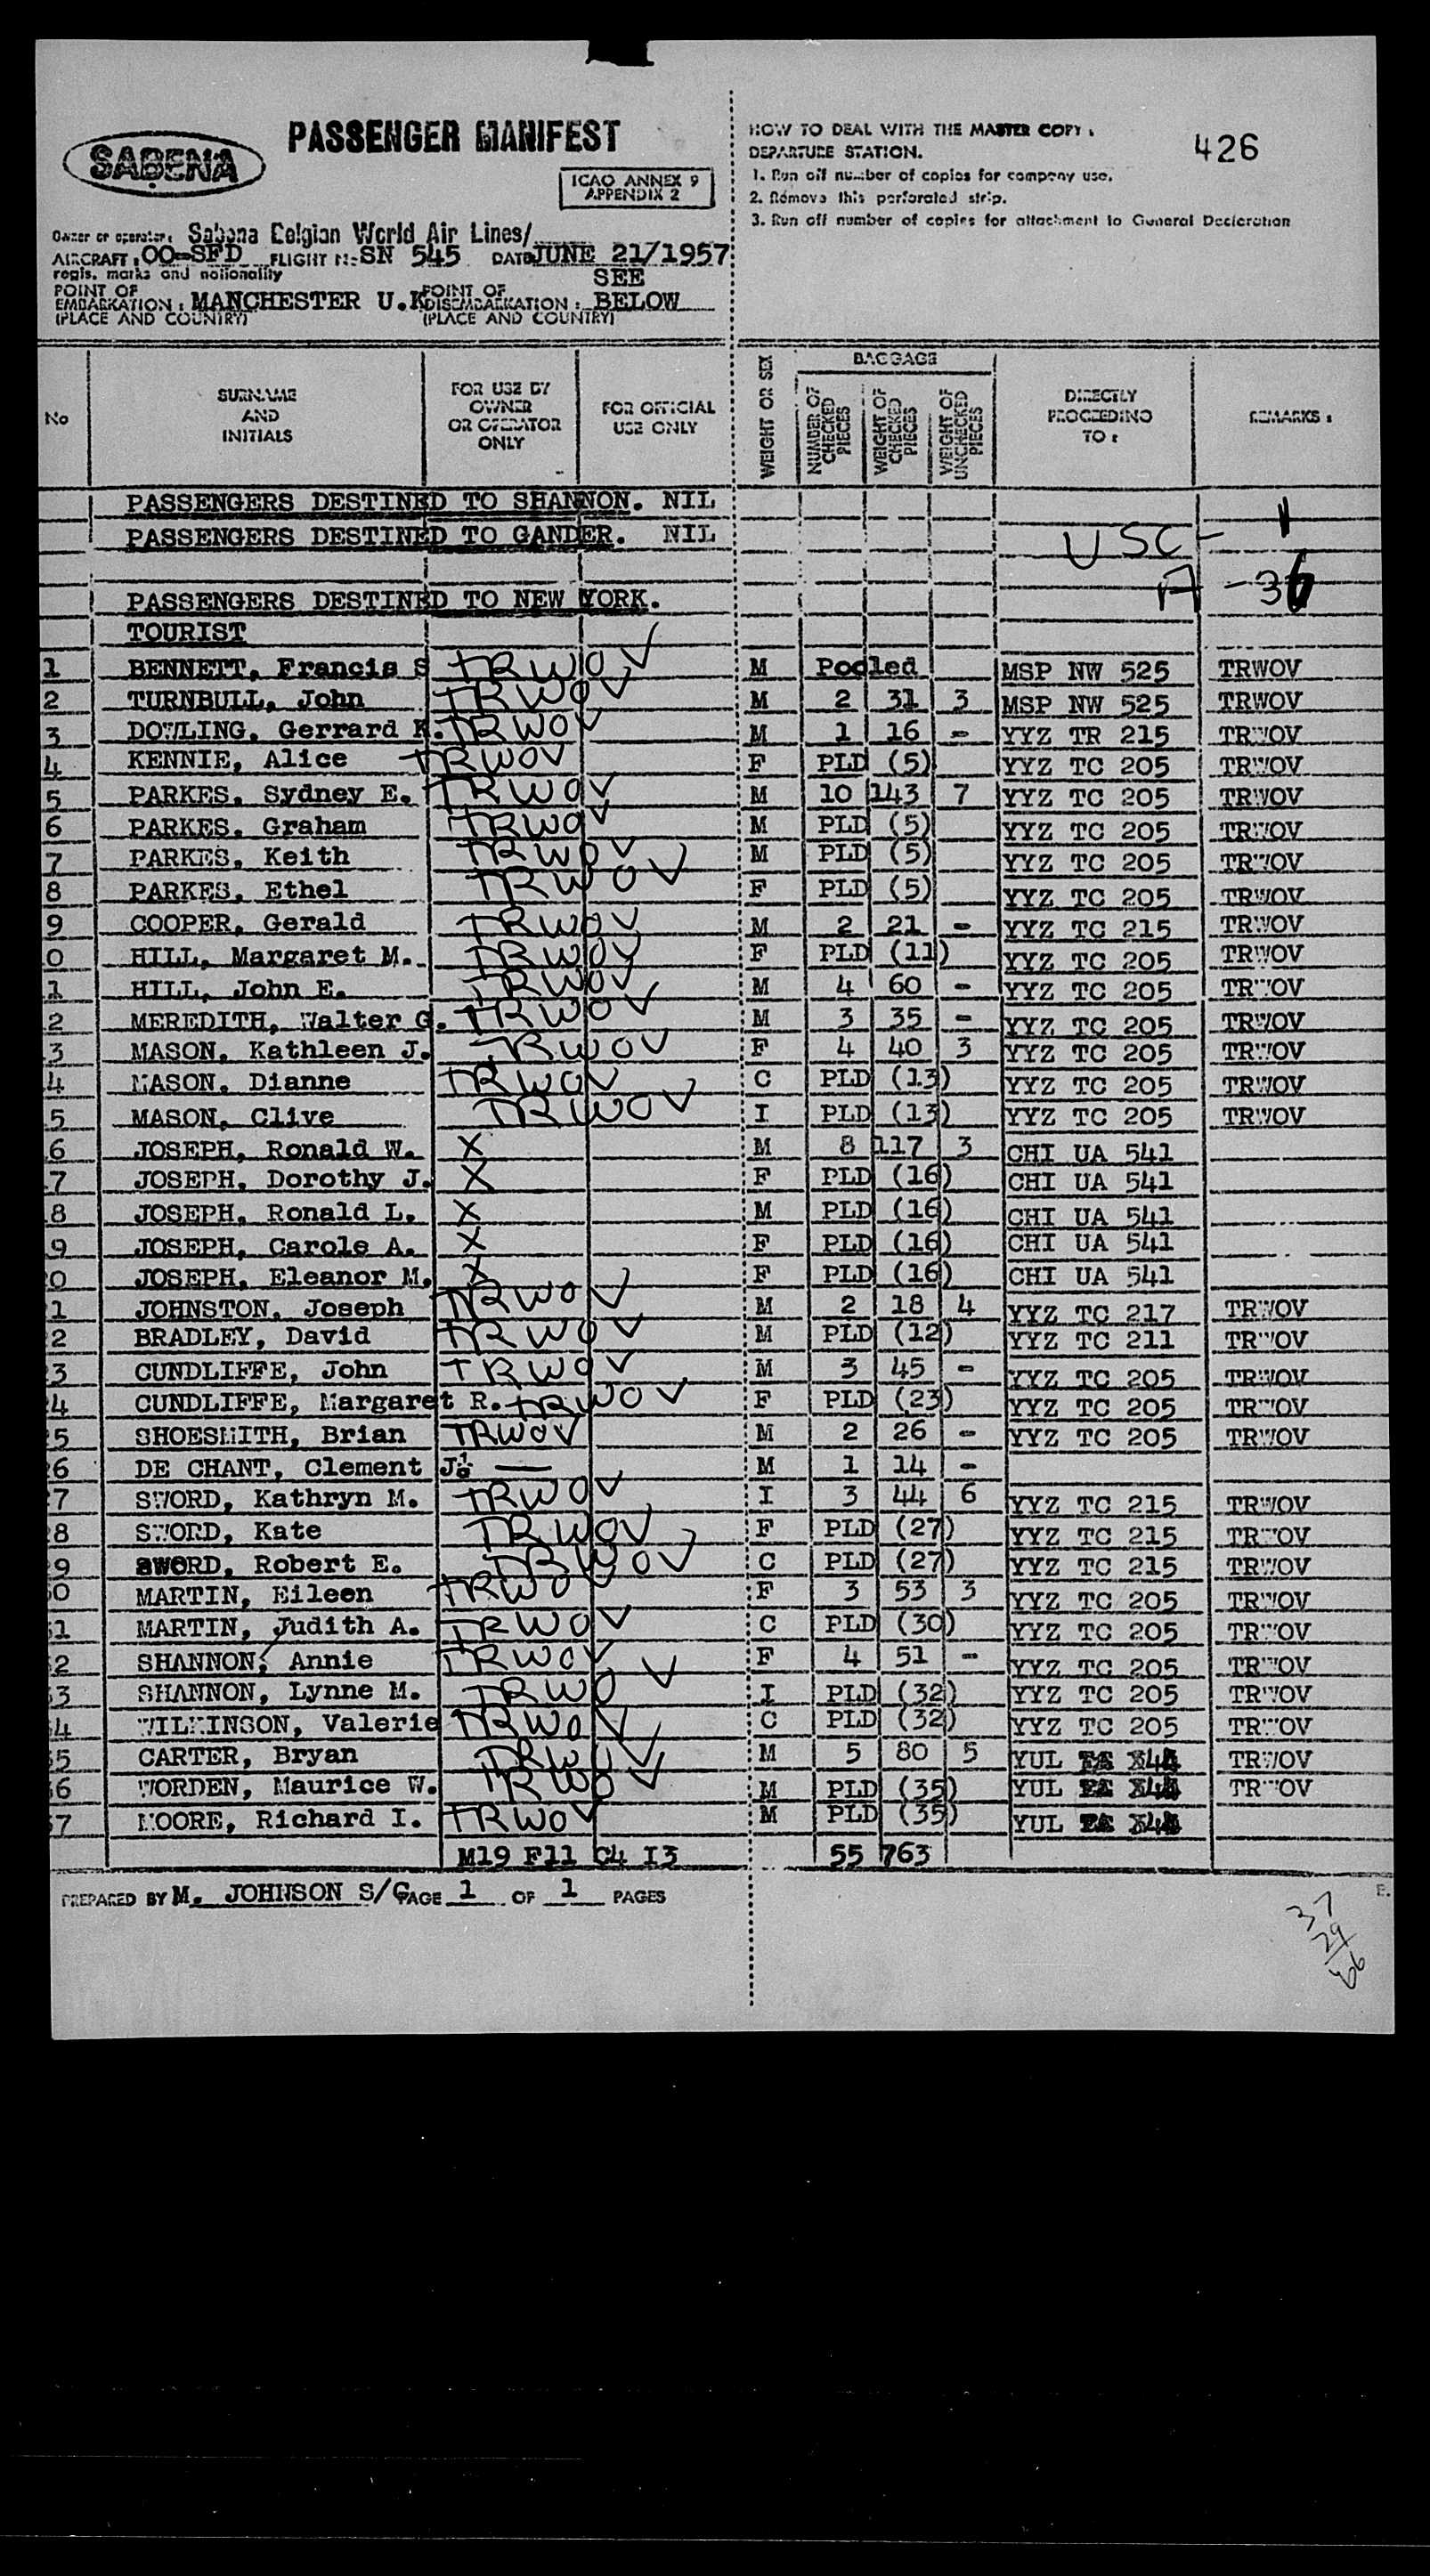 SABENA
PASSENGER MANIFEST
ICAO ANNEX 9
APPENDIX 2
HOW TO DEAL WITH THE MASTER COPY :
DEPARTURE STATION.
1. Run off number of copies for company use.
2. Remove this perforated strip.
3. Run off number of copies for attachment to General Declaration
426
Owner or operator: Sabena Belgian World Air Lines/
AIRCRAFT : OO-SFD FLIGHT N: SN 545 DATE JUNE 21/1957
regis. marks and nationality
POINT OF EMBARKATION : MANCHESTER U.K. POINT OF DISEMBARKATION : SEE BELOW
(PLACE AND COUNTRY) (PLACE AND COUNTRY)
No SURNAME AND INITIALS FOR USE BY OWNER OR OPERATOR ONLY FOR OFFICIAL USE ONLY WEIGHT OR SEX BAGGAGE NUMBER OF CHECKED PIECES WEIGHT OF CHECKED PIECES WEIGHT OF UNCHECKED PIECES DIRECTLY PROCEEDING TO : REMARKS :
PASSENGERS DESTINED TO SHANNON. NIL
PASSENGERS DESTINED TO GANDER. NIL
USC - 1
A - 36
PASSENGERS DESTINED TO NEW YORK.
TOURIST
1 BENNETT, Francis S TRWOV M Pooled MSP NW 525 TRWOV
2 TURNBULL, John TRWOV M 2 31 3 MSP NW 525 TRWOV
3 DOWLING, Gerrard K. TRWOV M 1 16 - YYZ TR 215 TRWOV
4 KENNIE, Alice TRWOV F PLD (5) YYZ TC 205 TRWOV
5 PARKES, Sydney E. TRWOV M 10 143 7 YYZ TC 205 TRWOV
6 PARKES, Graham TRWOV M PLD (5) YYZ TC 205 TRWOV
7 PARKES, Keith TRWOV M PLD (5) YYZ TC 205 TRWOV
8 PARKES, Ethel TRWOV F PLD (5) YYZ TC 205 TRWOV
9 COOPER, Gerald TRWOV M 2 21 - YYZ TC 215 TRWOV
0 HILL, Margaret M. TRWOV F PLD (11) YYZ TC 205 TRWOV
1 HILL, John E. TRWOV M 4 60 - YYZ TC 205 TRWOV
2 MEREDITH, Walter G. TRWOV M 3 35 - YYZ TC 205 TRWOV
3 MASON, Kathleen J. TRWOV F 4 40 3 YYZ TC 205 TRWOV
4 MASON, Dianne TRWOV C PLD (13) YYZ TC 205 TRWOV
5 MASON, Clive TRWOV I PLD (13) YYZ TC 205 TRWOV
6 JOSEPH, Ronald W. X M 8 117 3 CHI UA 541
7 JOSEPH, Dorothy J. X F PLD (16) CHI UA 541
8 JOSEPH, Ronald L. X M PLD (16) CHI UA 541
9 JOSEPH, Carole A. X F PLD (16) CHI UA 541
0 JOSEPH, Eleanor M. X F PLD (16) CHI UA 541
1 JOHNSTON, Joseph TRWOV M 2 18 4 YYZ TC 217 TRWOV
2 BRADLEY, David TRWOV M PLD (12) YYZ TC 211 TRWOV
3 CUNDLIFFE, John TRWOV M 3 45 - YYZ TC 205 TRWOV
4 CUNDLIFFE, Margaret R. TRWOV F PLD (23) YYZ TC 205 TRWOV
5 SHOESMITH, Brian TRWOV M 2 26 - YYZ TC 205 TRWOV
6 DE CHANT, Clement J. — M 1 14 -
7 SWORD, Kathryn M. TRWOV I 3 44 6 YYZ TC 215 TRWOV
8 SWORD, Kate TRWOV F PLD (27) YYZ TC 215 TRWOV
9 SWORD, Robert E. TRWOV C PLD (27) YYZ TC 215 TRWOV
0 MARTIN, Eileen TRWOV F 3 53 3 YYZ TC 205 TRWOV
1 MARTIN, Judith A. TRWOV C PLD (30) YYZ TC 205 TRWOV
2 SHANNON, Annie TRWOV F 4 51 - YYZ TC 205 TRWOV
3 SHANNON, Lynne M. TRWOV I PLD (32) YYZ TC 205 TRWOV
4 WILKINSON, Valerie TRWOV C PLD (32) YYZ TC 205 TRWOV
5 CARTER, Bryan TRWOV M 5 80 5 YUL TRWOV
6 WORDEN, Maurice W. TRWOV M PLD (35) YUL TRWOV
7 MOORE, Richard I. TRWOV M PLD (35) YUL
M19 F11 C4 I3 55 763
PREPARED BY M. JOHNSON S/C PAGE 1 OF 1 PAGES
37
29
66